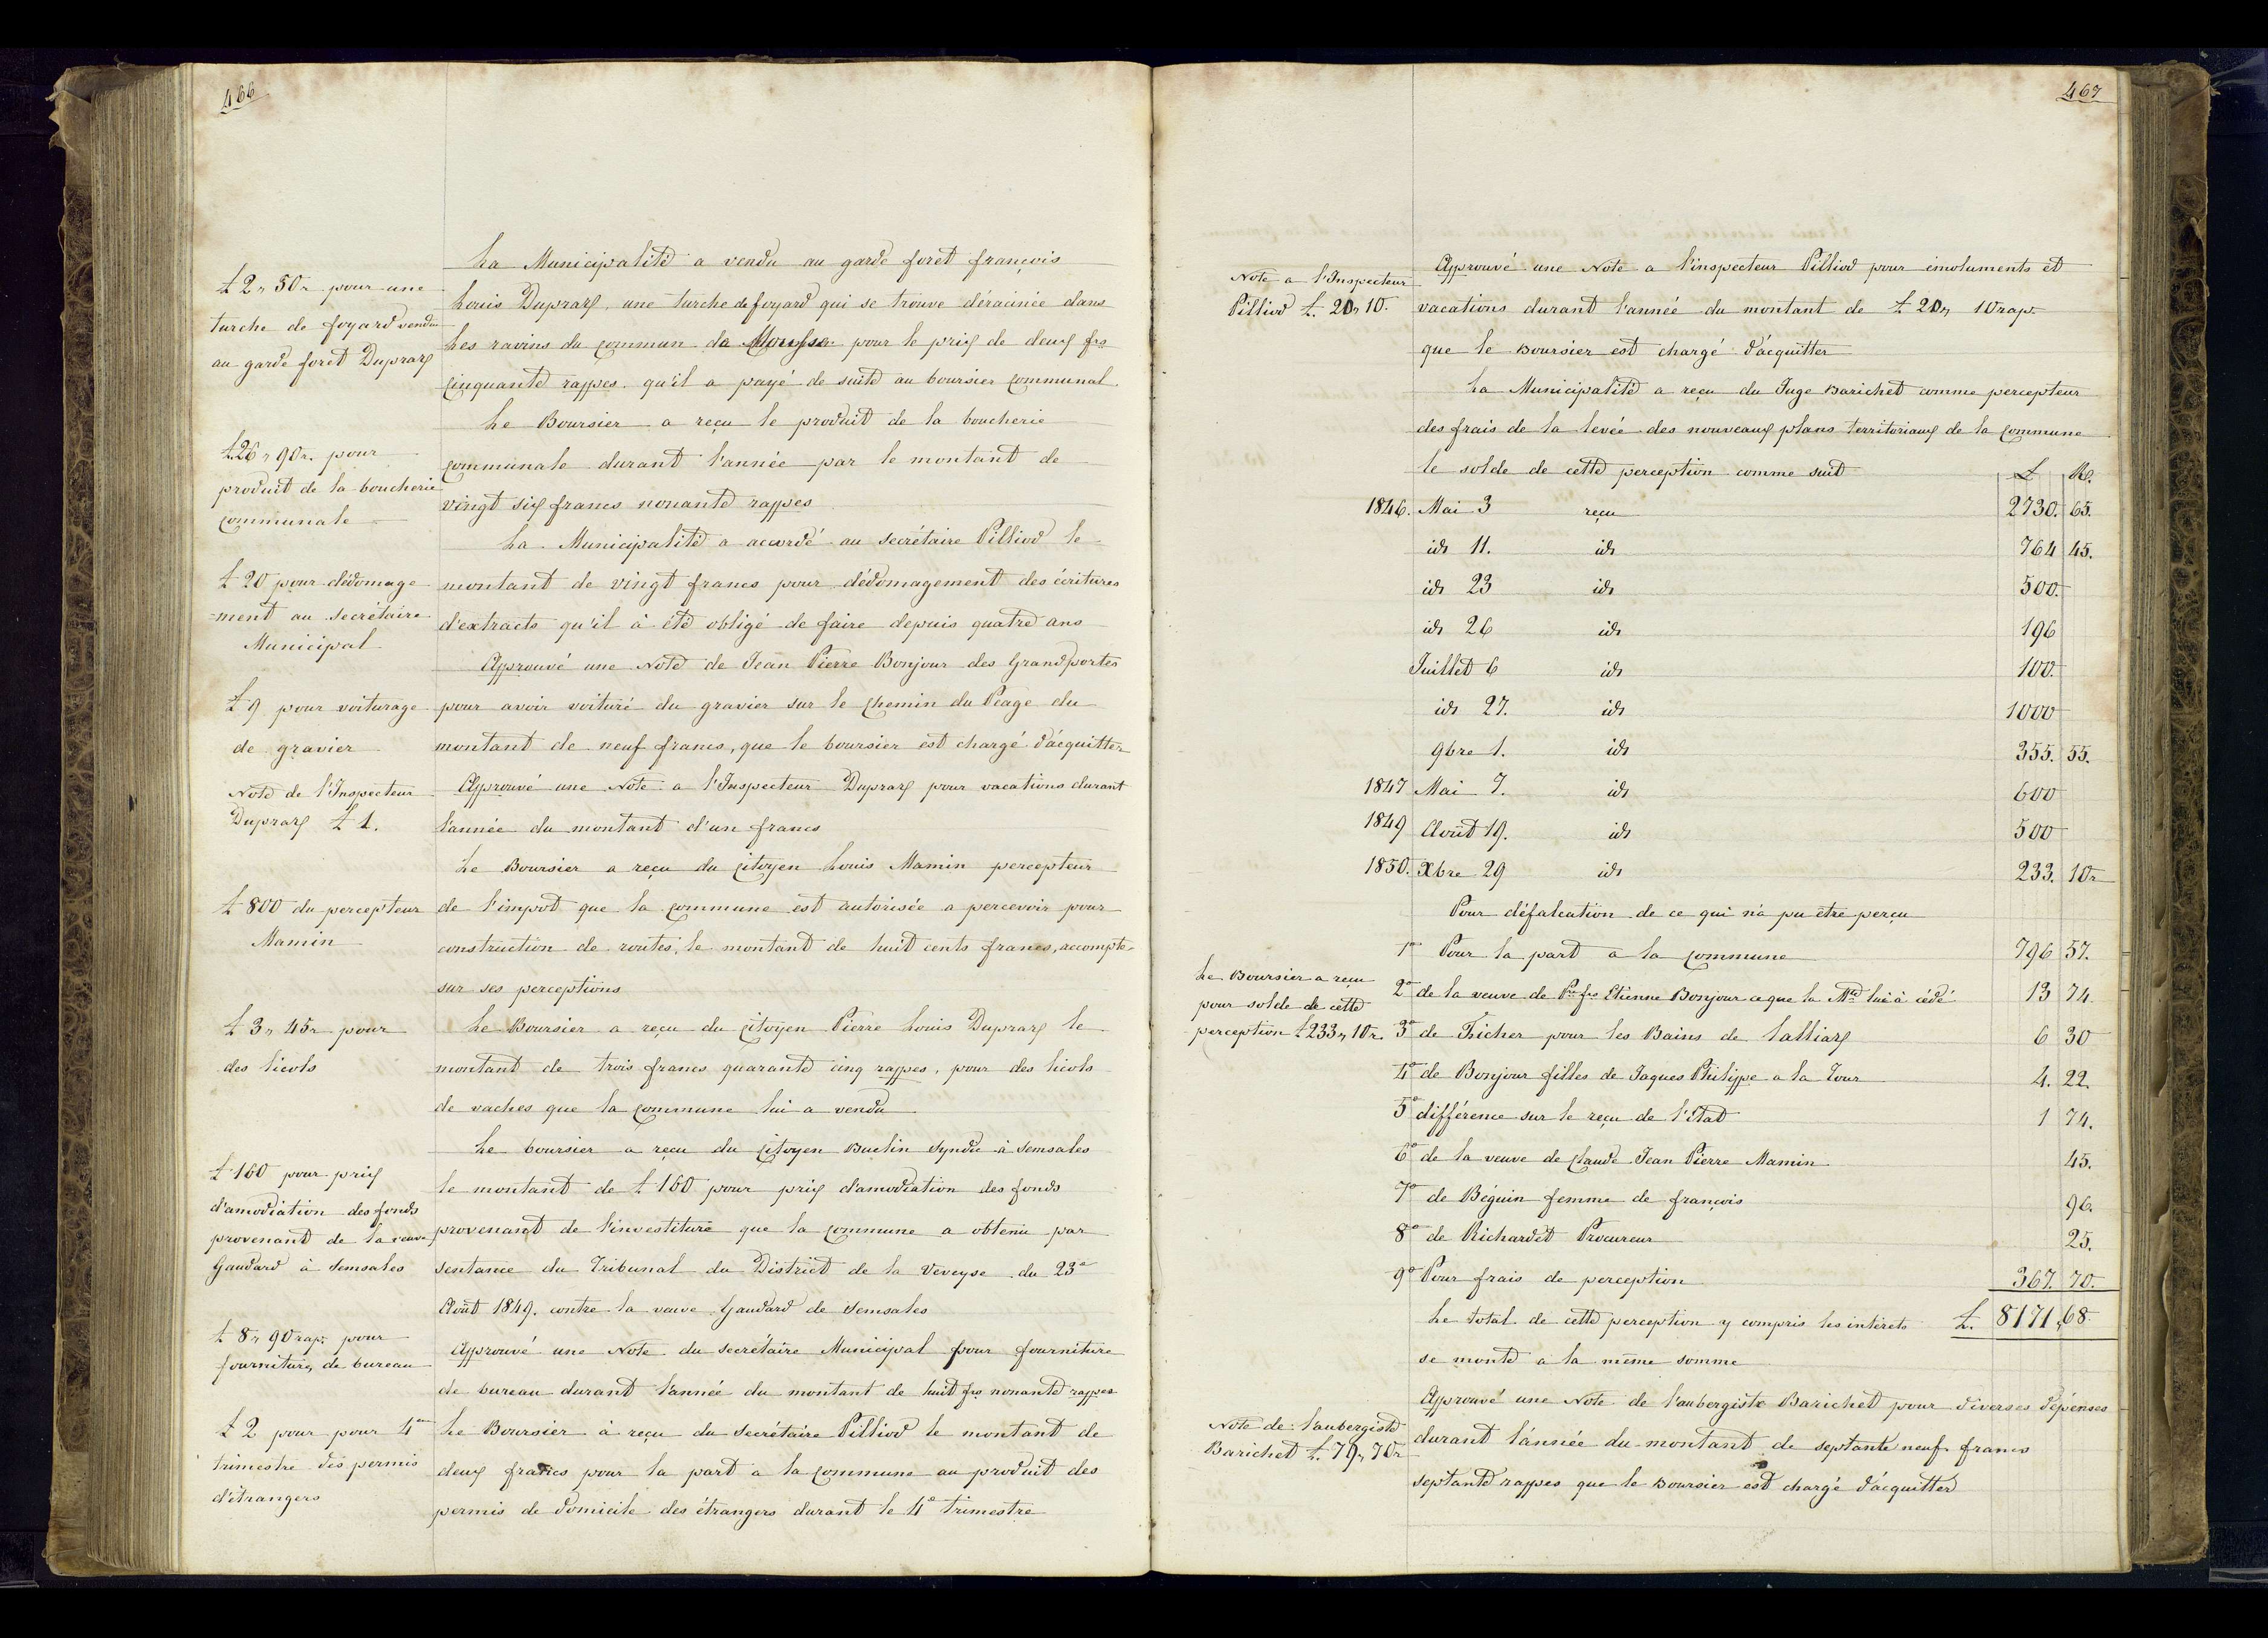 466
£ 2,, 50r. pour une
turche de foyard vendu
au garde foret Duprary
La Municipalité a vendu au garde foret françois
Louis Duprarz, une turche de foyard qui se trouve déracinée dans
les ravins du commun de pour le prix de deux frs
cinquante rappes. qu'il a payé de suite au boursier communal.
£ 26,, 90r. pour
produit de la boucherie
communale
Le Boursier a reçu le produit de la boucherie
communale durant l'année par le montant de
vingt six francs nonante rappes
£ 20 pour dédomage
-ment au secrétaire
Municipal
La Municipalité a accordé au secrétaire Pilliod le
montant de vingt francs pour dédomagement des écritures
d'extracts qu'il à été obligé de faire depuis quatre ans
£ 9 pour voiturage
de gravier
Approuvé une Note de Jean Pierre Bonjour des Grandportes
pour avoir voituré du gravier sur le chemin du Péage du
montant de neuf francs, que le boursier est chargé d'acquitter
Note de l'Inspecteur
Duprarz £ 1.
Approuvé une Note a l'Inspecteur Duprarz pour vacations durant
l'année du montant d'un francs
£ 800 du percepteur
Mamin
Le Boursier a reçu du citoyen Louis Mamin percepteur
de l'impot que la commune est autorisée a percevoir pour
construction de routes, le montant de huit cents francs, accompte
sur ses perceptions
£ 3,, 45r pour
des licols
Le Boursier a reçu du citoyen Pierre Louis Duprarz le
montant de trois francs quarante cinq rappes, pour des licols
de vaches que la commune lui a vendu
£ 160 pour prix
d'amodiation des fonds
provenant de la veuve
Gaudard à Semsales
Le boursier a reçu du citoyen Buclin syndic à Semsales
le montant de £ 160 pour prix d'amodiation des fonds
provenant de l'investiture que la commune a obtenu par
sentance du Tribunal du District de la Veveyse du 23e
Août 1849. contre la veuve Gaudard de Semsales
£ 8,, 90 rap: pour
fournitures de bureau
Approuvé une Note du secrétaire Municipal pour fourniture
de bureau durant l'année du montant de huit frs nonante rappes
£ 2 pour pour 4e
trimestre des permis
d'étrangers
Le Boursier à reçu du secrétaire Pilliod le montant de
deux francs pour la part a la commune au produit des
permis de domicile des étrangers durant le 4e trimestre
467
Note a l'Inspecteur
Pilliod £. 20,, 10.
Approuvé une Note a l'inspecteur Pilliod pour émoluments et
vacations durant l'année du montant de £ 20,, 10 rap.
que le Boursier est chargé d'acquitter
La Municipalité a reçu du Juge Barichet comme percepteur
des frais de la levée des nouveaux plans territoriaux de la commune
le solde de cette perception comme suit £ R.
1846. Mai 3 reçu 2730. 65.
id. 11. id. 764 45.
id. 23 id. 500.
id. 26 id. 196
Juillet 6 id. 100.
id. 27. id. 1000
9bre 1. id. 355. 55.
1847 Mai 7. id. 600
1849 Août 19. id. 500
1850. Xbre 29 id. 233. 10r
Pour défalcation de ce qui n'a pu être perçu
1o Pour la part a la commune 796 57.
Le Boursier a reçu
pour solde de cette
perception £ 233,, 10r.
2o de la veuve de Pre frs Etienne Bonjour ce que la Mté lui à cédé 13 74.
3o de Fricher pour les Bains de Lalliaz 6 30
4o de Bonjour filles de Jaques Philippe a la Tour 4. 22.
5o différence sur le reçu de l'Etat 1 74.
6o de la veuve de Claude Jean Pierre Mamin 45.
7o de Béguin femme de françois 96.
8o de Richardet Procureur 25.
9o Pour frais de perception 367. 70.
Le total de cette perception y compris les intérets £. 8171,,68.
se monte a la même somme
Note de l'aubergiste
Barichet £. 79,, 70r
Approuvé une Note de l'aubergiste Barichet pour diverses dépenses
durant l'année du montant de septante neuf francs
septante rappes que le Boursier est chargé d'acquitter